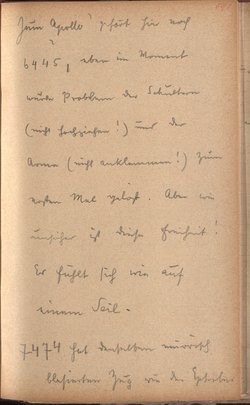 Zum Apollo gehört hier noch
6445, eben im Moment
wurde Problem der Schultern
(nicht hochziehen!) und der
Arme (nicht anklemmen!) zum
ersten Mal gelöst. Aber wie
unsicher ist diese Freiheit!
Er fühlt sich wie auf
einem Seil.
7474 hat denselben mürrisch
blasierten Zug wie der